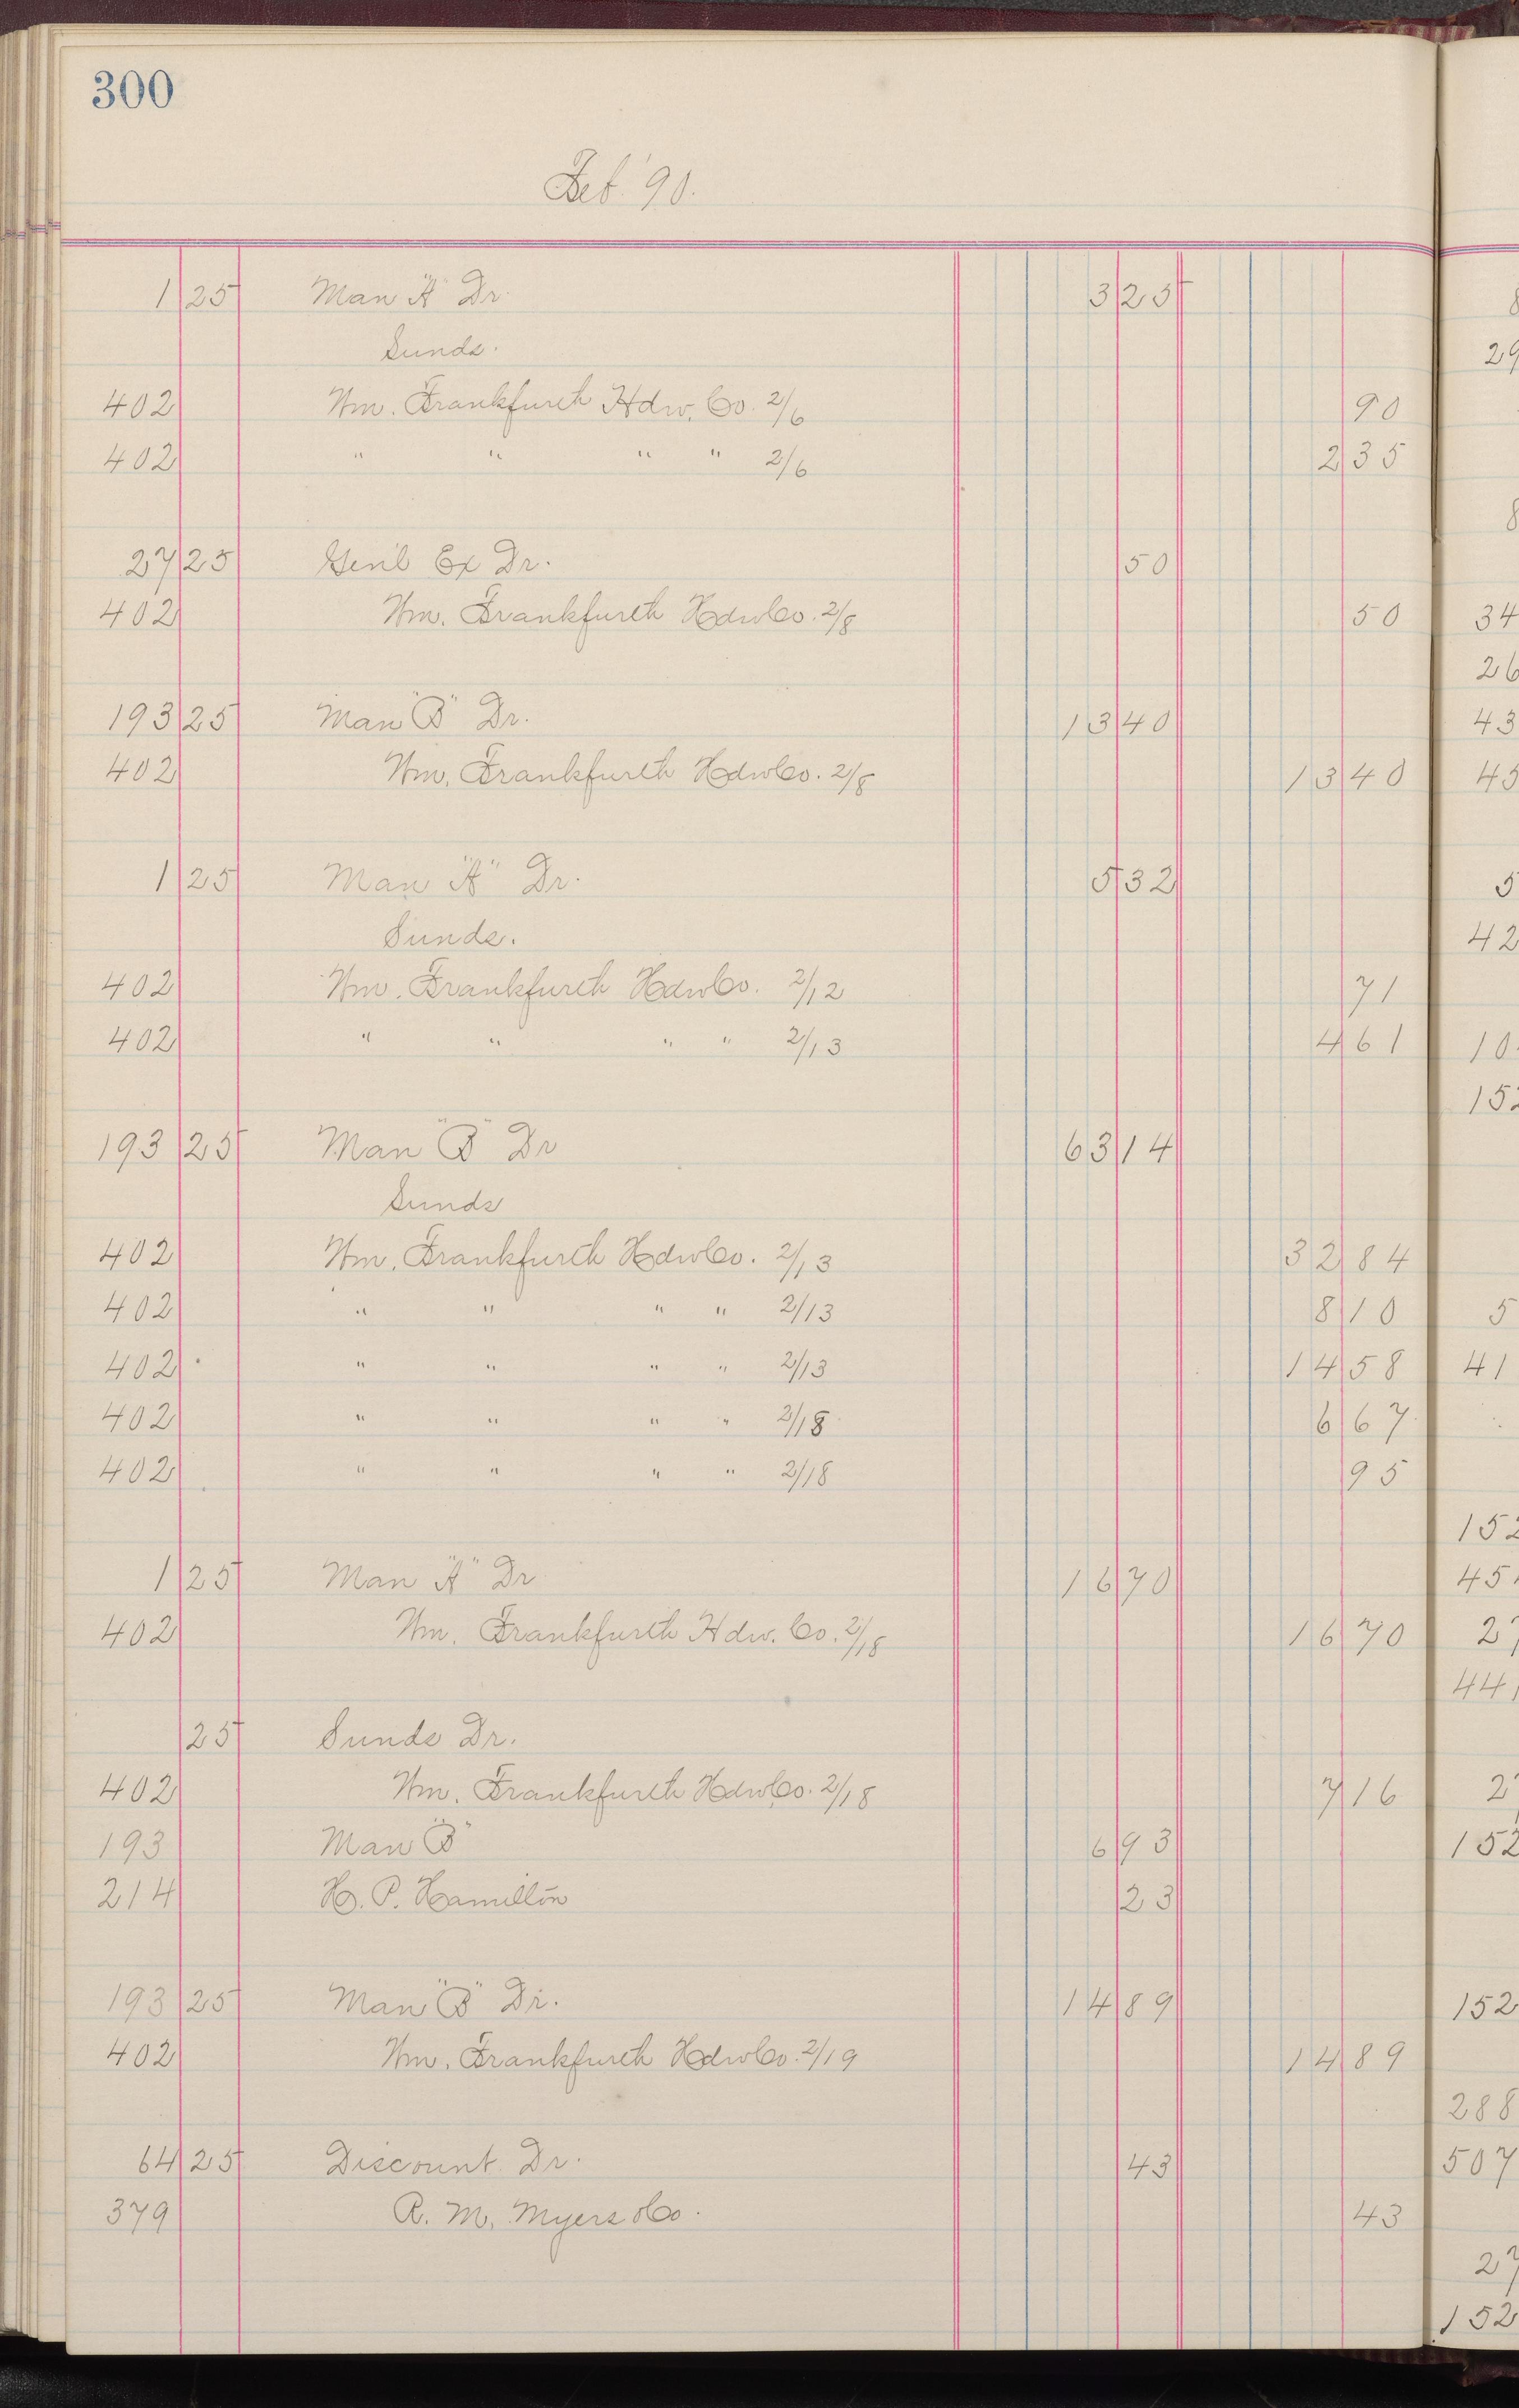 300
Feb. '90.
1 25 Man "A" Dr. 3 25
Sunds.
402 Wm. Frankfurth Hdw. Co. 2/6 90
402 " " " " 2/6 2 35
27 25 Gen'l Ex Dr. 50
402 Wm. Frankfurth Hdw Co. 2/8 50
193 25 Man "B" Dr. 13 40
402 Wm. Frankfurth Hdw Co. 2/8 13 40
1 25 Man "A" Dr. 5 32
Sunds.
402 Wm. Frankfurth Hdw Co. 2/12 71
402 " " " " 2/13 4 61
193 25 Man "B" Dr 63 14
Sunds
402 Wm. Frankfurth Hdw Co. 2/13 32 84
402 " " " " 2/13 8 10
402 " " " " 2/13 14 58
402 " " " " 2/18 6 67
402 " " " " 2/18 95
1 25 Man "A" Dr 16 70
402 Wm. Frankfurth Hdw. Co. 2/18 16 70
25 Sunds Dr.
402 Wm. Frankfurth Hdw Co. 2/18 7 16
193 Man "B" 6 93
214 H. P. Hamilton 23
193 25 Man "B" Dr. 14 89
402 Wm. Frankfurth Hdw Co. 2/19 14 89
64 25 Discount Dr. 43
379 R. M. Myers & Co. 43